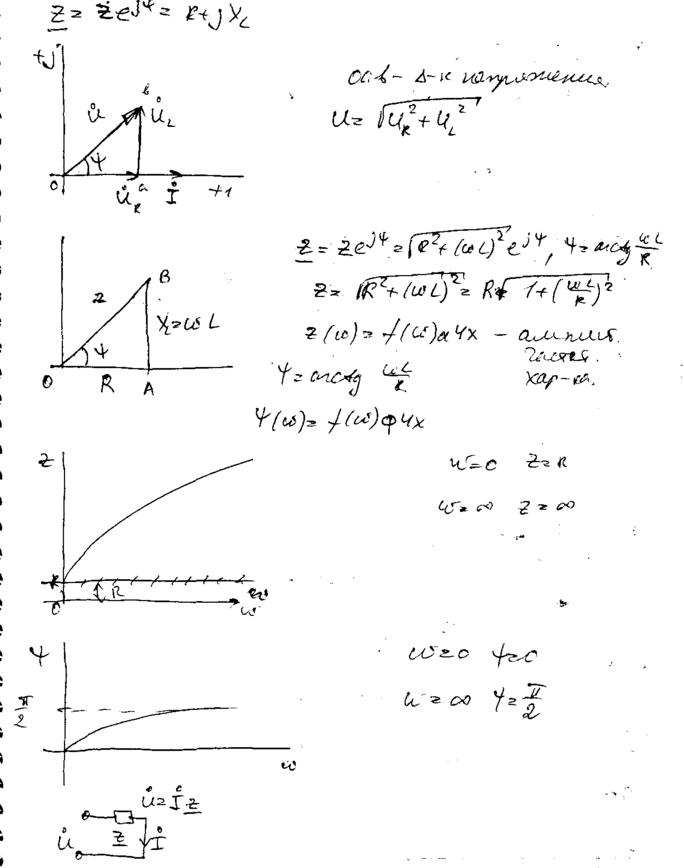 Z = z e^jφ = R + jX_L
+j
b
U̇
U̇_L
φ
0
a
U̇_R
İ
+1
оав - Δ-к напряжения.
U = √(U_R² + U_L²)
z
B
X_L = ωL
φ
0
R
A
Z = z e^jφ = √(R² + (ωL)²) e^jφ, φ = arctg ωL/R
z = √(R² + (ωL)²) = R√(1 + (ωL/R)²)
z(ω) = f(ω) АЧХ - амплит.
частот.
хар-ка.
φ = arctg ωL/R
φ(ω) = f(ω) ФЧХ
z
ω=0 z=R
ω=∞ z=∞
R
R
0
ω
φ
ω=0 φ=0
π/2
ω=∞ φ=π/2
ω
U̇ = İ Z
U̇
Z
İ